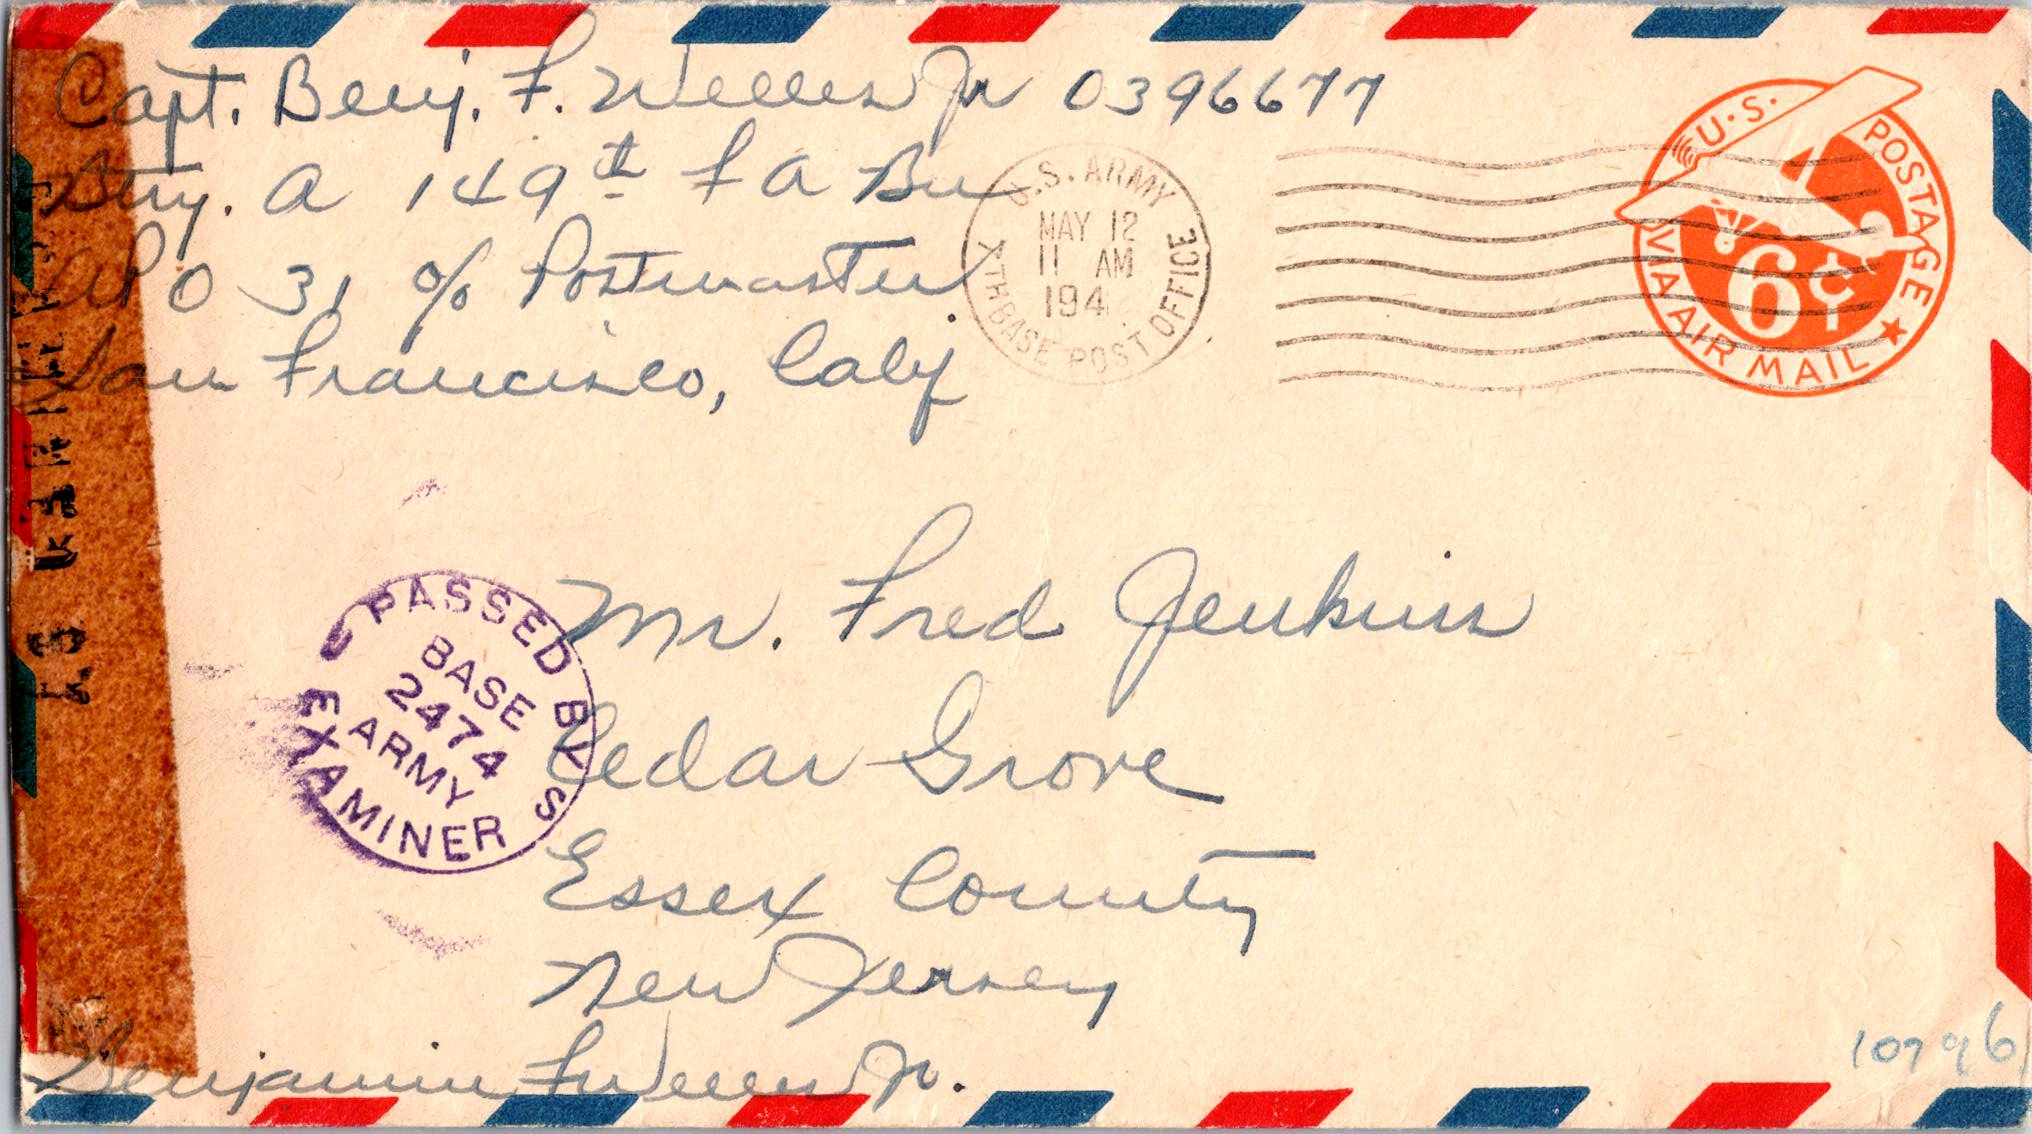 Capt. Benj. F. Welles Jr 0396677
Btry. A 149th F A Bn
APO 31 % Postmaster
San Francisco, Calif
U.S. ARMY
MAY 12
11 AM
194
POST OFFICE
U.S. POSTAGE
6¢
VIA AIR MAIL
PASSED BY
BASE
2474
ARMY
EXAMINER
Mr. Fred Jenkins
Cedar Grove
Essex County
New Jersey
Benjamin F Welles Jr.
10796